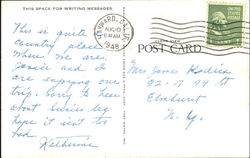 THIS SPACE FOR WRITING MESSAGES
HAYWARD, CALIF.
AUG 10
1948
POST CARD
This is quite
country place
where we are.
Jennie and I
are enjoying our
trip. Sorry to hear
about Susie's leg
hope it isn't too
bad.
Katherine
Mrs James
92-17 94 St
Elmhurst
N. Y.